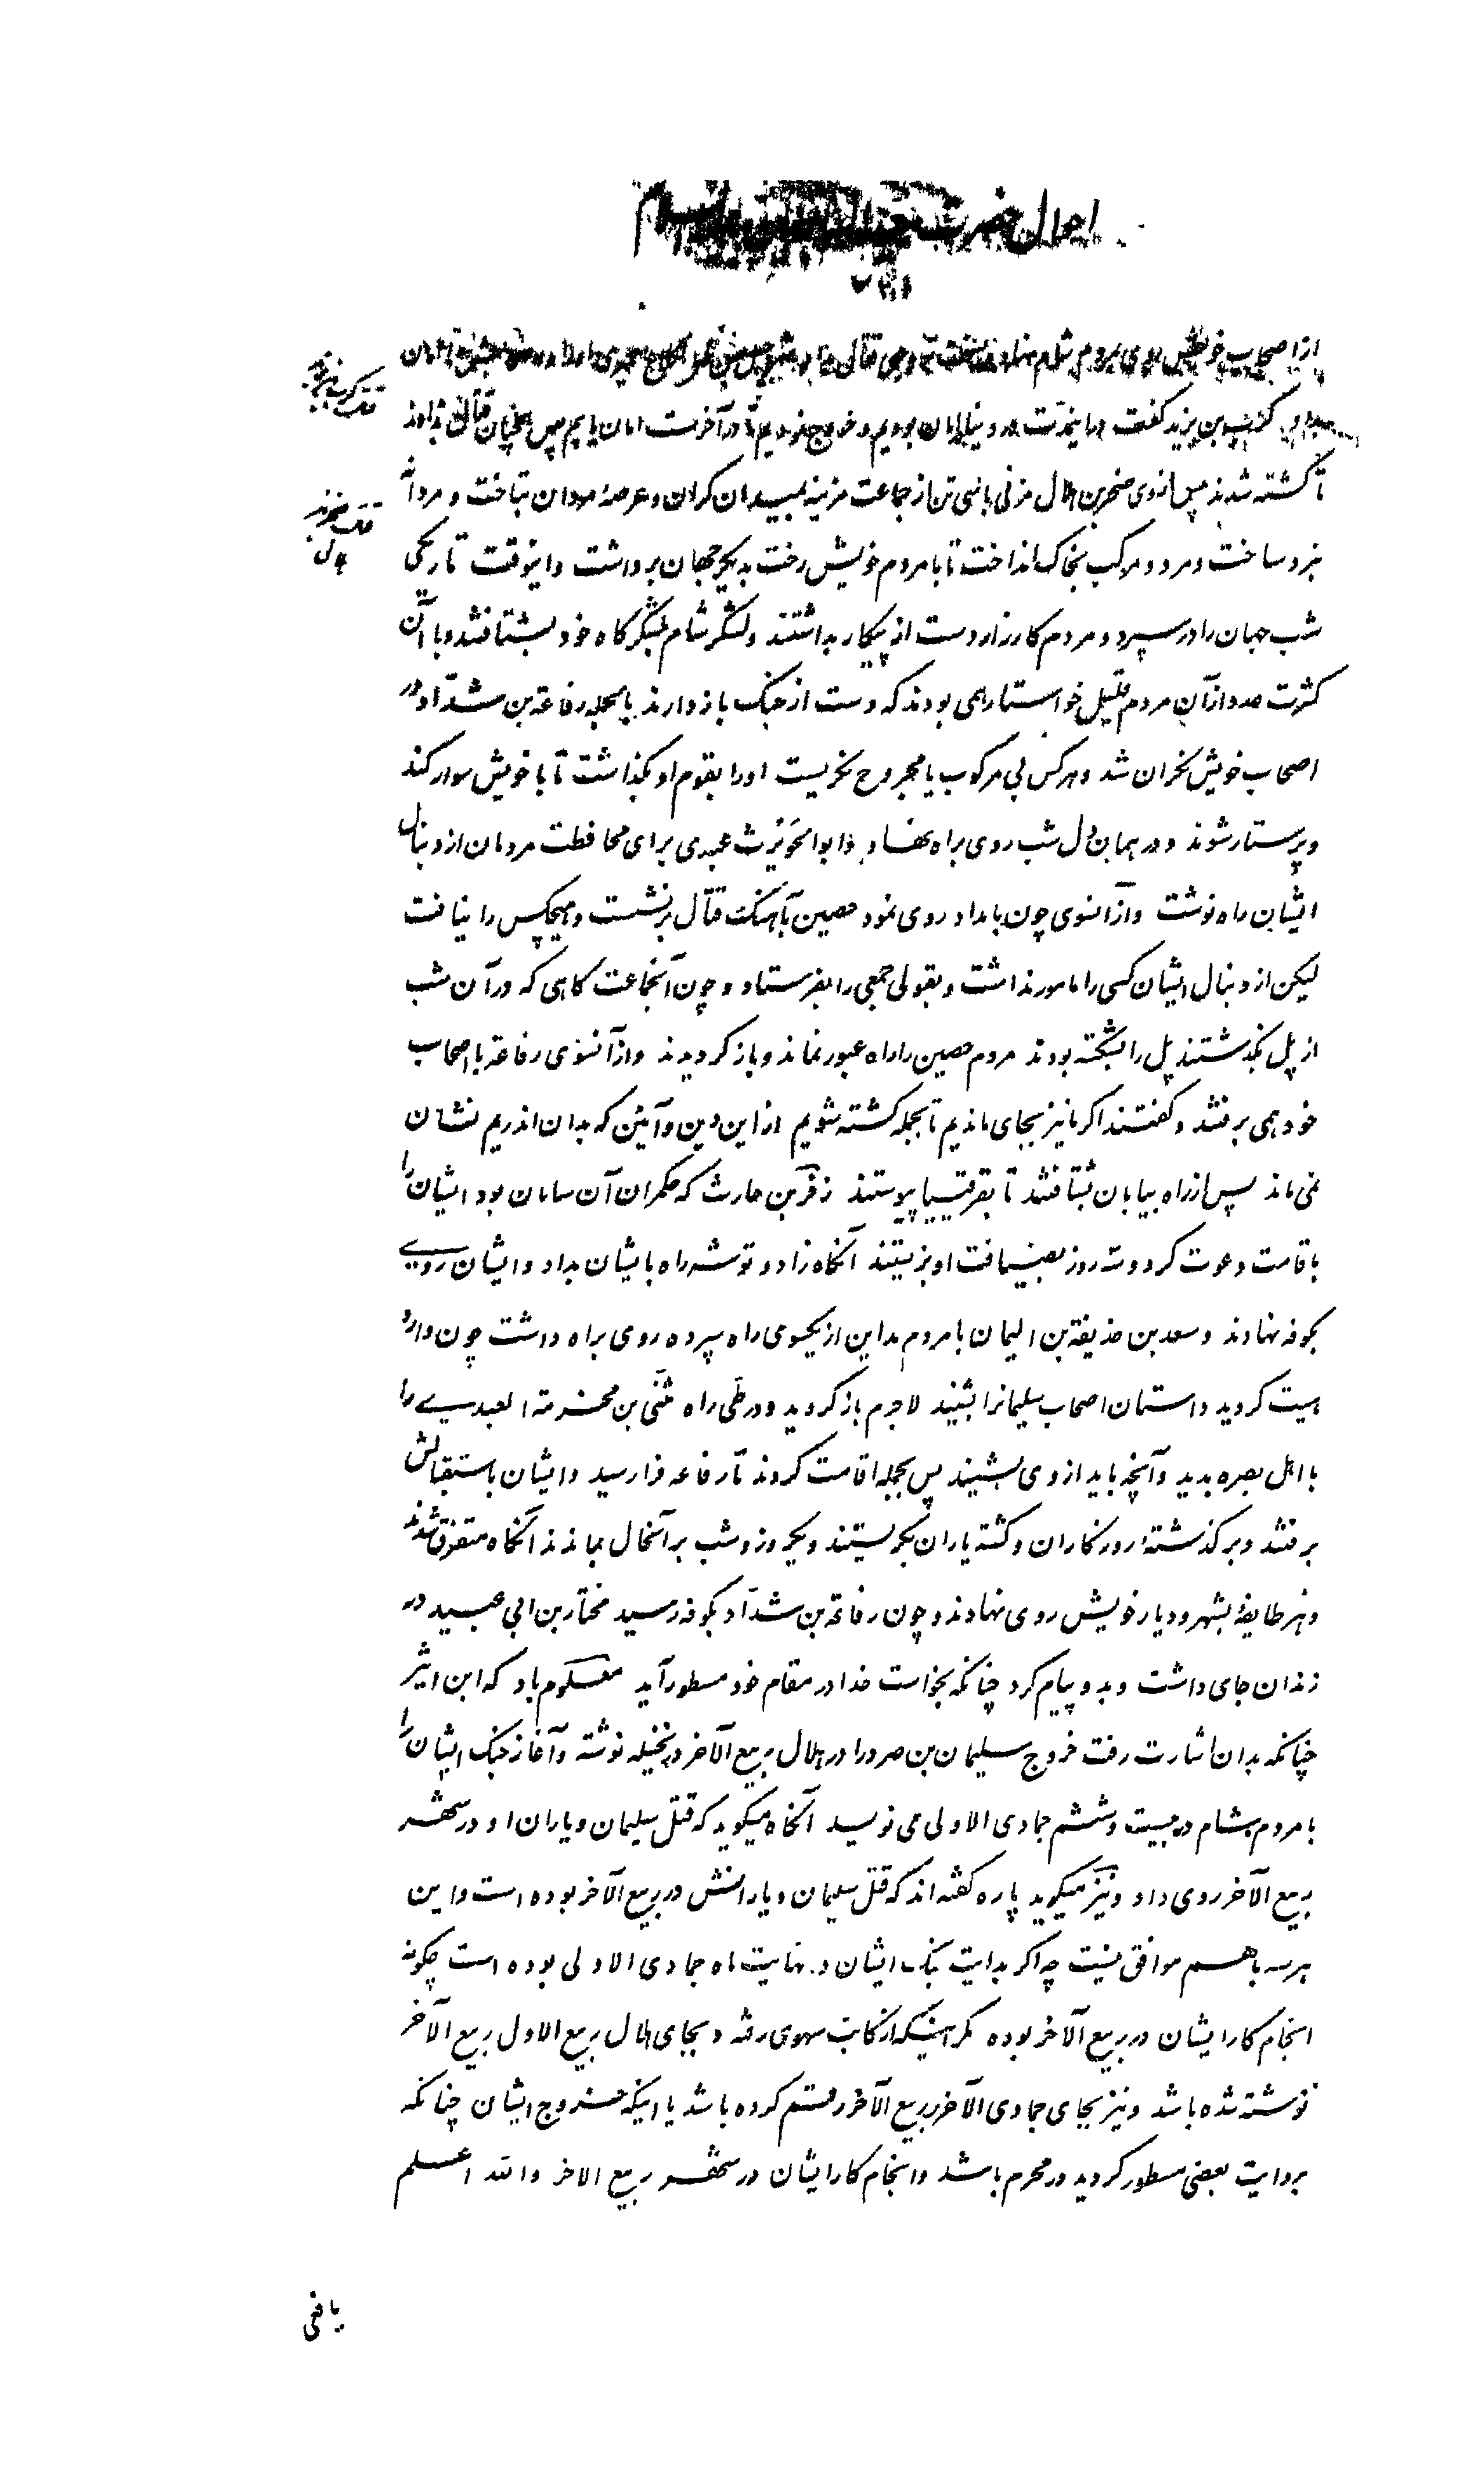 احوال حضرت
از اصحاب خویش روی بمردم شام نهاد
کریب بن یزید گفت ما در دنیا بامان بودیم و خروج نمودیم تا در آخرت امان یابیم پس همچنان قتال بدادند
تا کشته شدند پس از وی صخر بن هلال مزنی باسی تن از جماعت مزینه بمیدان کران و عرصهٔ مردان بتاخت و مردانه
نبرد ساخت و مرد و مرکب بخاک انداخت تا با مردم خویش رخت بدیگر جهان برداشت و اینوقت تاریکی
شب جهان را در سپرد و مردم کارزار دست از پیکار بداشتند و لشگر شام بلشگرگاه خود بشتافتند و با آن
کثرت عدد از آن مردم قلیل خواستار همی بودند که دست از جنک باز دارند بالجمله رفاعة بن شدّاد در
اصحاب خویش نگران شد و هر کس بی مرکوب یا مجروح نگریست او را بقوم او بگذاشت تا با خویش سوار کند
و پرستار شوند و در همان دل شب روی براه نهاد و ابوالحویرث عبدی برای محافظت مردمان از دنبال
ایشان راه نوشت و از آنسوی چون بامداد روی نمود حصین بآهنک قتال برنشست و هیچکس را نیافت
لیکن از دنبال ایشان کسی را مامور نداشت و بقولی جمعی را بفرستاد و چون آنجماعت کاهی که در آن شب
از پل بگذشتند پل را بشکسته بودند مردم حصین را راه عبور نماند و باز کردیدند و از آنسوی رفاعة با اصحاب
خود همی برفتند و گفتند اگر ما نیز بجای ماندیم تا بجمله کشته شویم از این دین و آئین که بدان اندریم نشان
نمی ماند پس از راه بیابان بشتافتند تا بقرقیسیا پیوستند زفر بن حارث که حکمران آن سامان بود ایشان را
باقامت دعوت کرد و سه روز بضیافت او بزیستند آنگاه زاد و توشه راه بایشان بداد و ایشان روی
بکوفه نهادند و سعد بن حذیفة بن الیمان با مردم مداین از یکسوی راه سپرده روی براه داشت چون وارد
هیت کردید داستان اصحاب سلیمانرا بشنید لاجرم باز کردید و در طی راه مثنی بن مخرمة العبدی را
با اهل بصره بدید و آنچه باید از وی بشنید پس بجمله اقامت کردند تا رفاعه فرا رسید و ایشان باستقبالش
برفتند و بر گذشته روزگاران و کشته یاران بگریستند و یکروز و شب بر آنحال بماندند آنگاه متفرق شدند
و هر طایفهٔ بشهر و دیار خویش روی نهادند و چون رفاعة بن شدّاد بکوفه رسید مختار بن ابی عبید در
زندان جای داشت و بدو پیام کرد چنانکه بخواست خدا در مقام خود مسطور آید معلوم باد که ابن اثیر
چنانکه بدان اشارت رفت خروج سلیمان بن صرد را در هلال ربیع الآخر در نخیله نوشته و آغاز جنک ایشان را
با مردم شام در بیست و ششم جمادی الاولی می نویسد آنگاه میگوید که قتل سلیمان و یاران او در شهر
ربیع الآخر روی داد و نیز میگوید پاره گفته اند که قتل سلیمان و یارانش در ربیع الآخر بوده است و این
هر سه با هم موافق نیست چه اگر بدایت جنک ایشان در نهایت ماه جمادی الاولی بوده است چگونه
انجام کار ایشان در ربیع الآخر بوده مگر اینکه از کاتب سهوی رفته و بجای هلال ربیع الاول ربیع الآخر
نوشته شده باشد و نیز بجای جمادی الآخر ربیع الآخر رقم کرده باشد یا اینکه خروج ایشان چنانکه
بروایت بعضی مسطور کردید در محرم باشد و انجام کار ایشان در شهر ربیع الاخر والله اعلم
قتل کریب بن یزید
قتل صخر بن هلال
یافعی